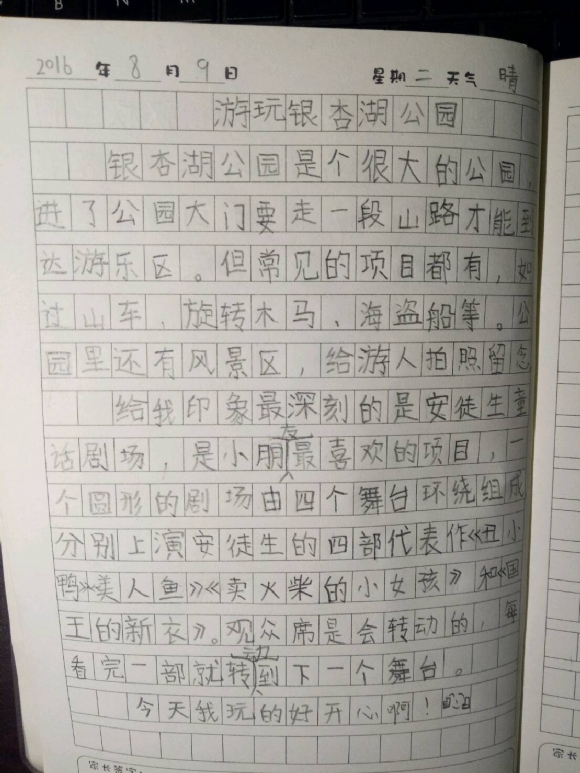 2016年8月9日 星期二 天气 晴
游玩银杏湖公园
银杏湖公园是个很大的公园,
进了公园大门要走一段山路才能到
达游乐区。但常见的项目都有,如
过山车、旋转木马、海盗船等。公
园里还有风景区,给游人拍照留念
给我印象最深刻的是安徒生童
话剧场,是小朋友最喜欢的项目,一
个圆形的剧场由四个舞台环绕组成
分别上演安徒生的四部代表作《丑小
鸭》《美人鱼》《卖火柴的小女孩》和《国
王的新衣》。观众席是会转动的,每
看完一部就转动到下一个舞台。
今天我玩的好开心啊!